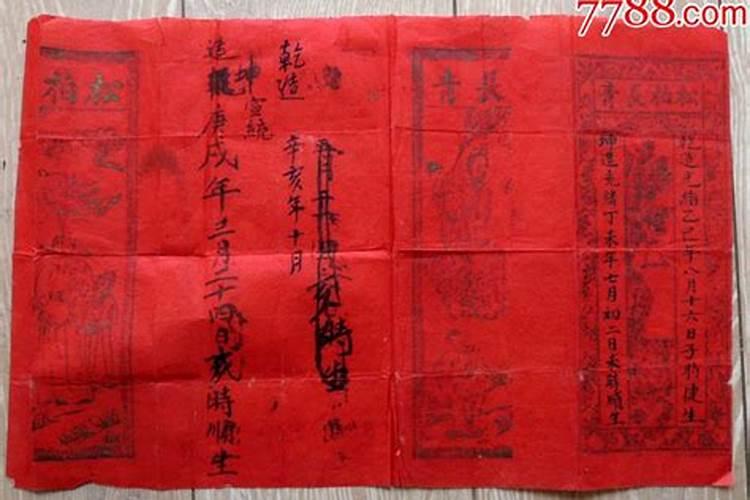 7788.com
松柏長青
乾造光緒乙巳年八月十六日子時健生
坤造光緒丁未年七月初二日未時順生
長青
乾造
宣統
辛亥年十月
時生
坤
造庚戌年月二十四日時順生
松柏